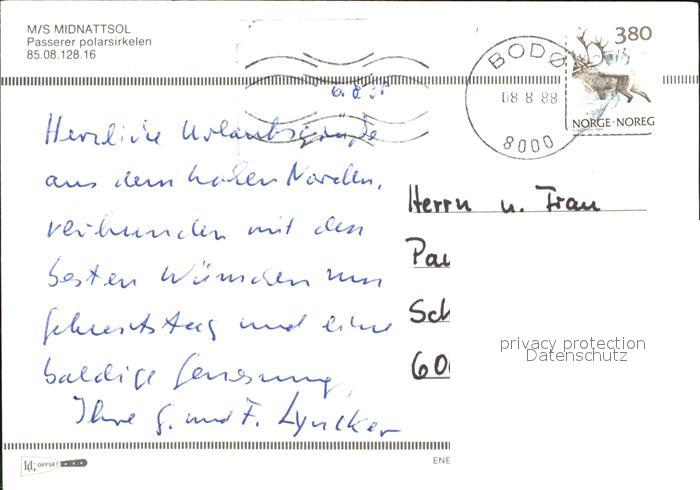 M/S MIDNATTSOL
Passerer polarsirkelen
85.08.128.16
6.8.88
BODØ
08 8 88
8000
380
NORGE·NOREG
Herzliche Urlaubsgrüße
aus dem hohen Norden,
verbunden mit den
besten Wünschen zum
Geburtstag und eine
baldige Genesung,
Ihre G. und F. Lyncker
Herrn u. Frau
Pau
Sch
600
privacy protection
Datenschutz
OFFSET
ENE